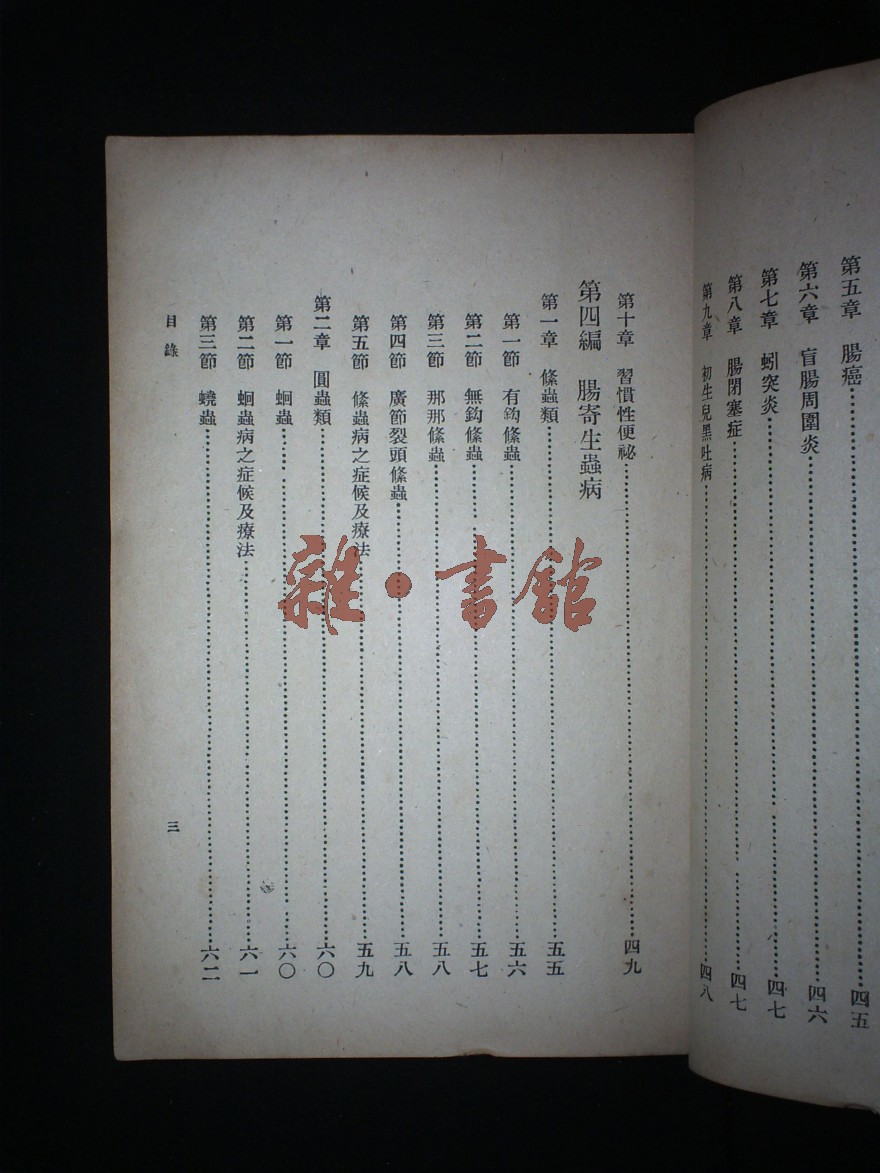 第五章　腸癌…………四五
第六章　盲腸周圍炎…………四六
第七章　蚓突炎…………四七
第八章　腸閉塞症…………四七
第九章　初生兒黑吐病…………四八
第十章　習慣性便祕…………四九
第四編　腸寄生蟲病
第一章　絛蟲類…………五五
第一節　有鈎絛蟲…………五六
第二節　無鈎絛蟲…………五七
第三節　那那絛蟲…………五八
第四節　廣節裂頭絛蟲…………五八
第五節　絛蟲病之症候及療法…………五九
第二章　圓蟲類…………六〇
第一節　蛔蟲…………六〇
第二節　蛔蟲病之症候及療法…………六一
第三節　蟯蟲…………六二
目錄
三
雜·書館